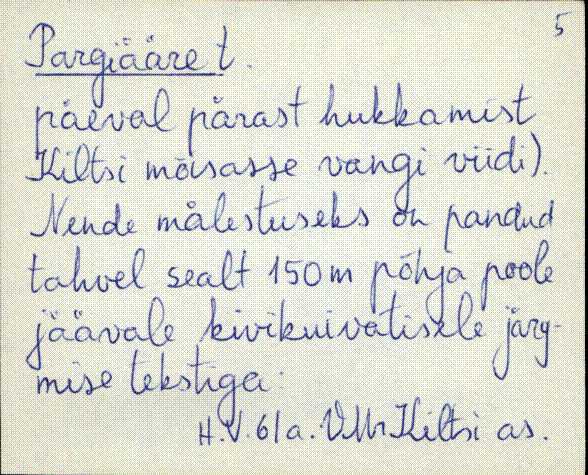 5
Pargiääre t.
päeval pärast hukkamist
Kiltsi mõisasse vangi viidi).
Nende mälestuseks on pandud
tahvel sealt 150 m põhja poole
jäävale kivikuivatisele järg-
mise tekstiga:
H.V. 61 a. VMr Kiltsi as.